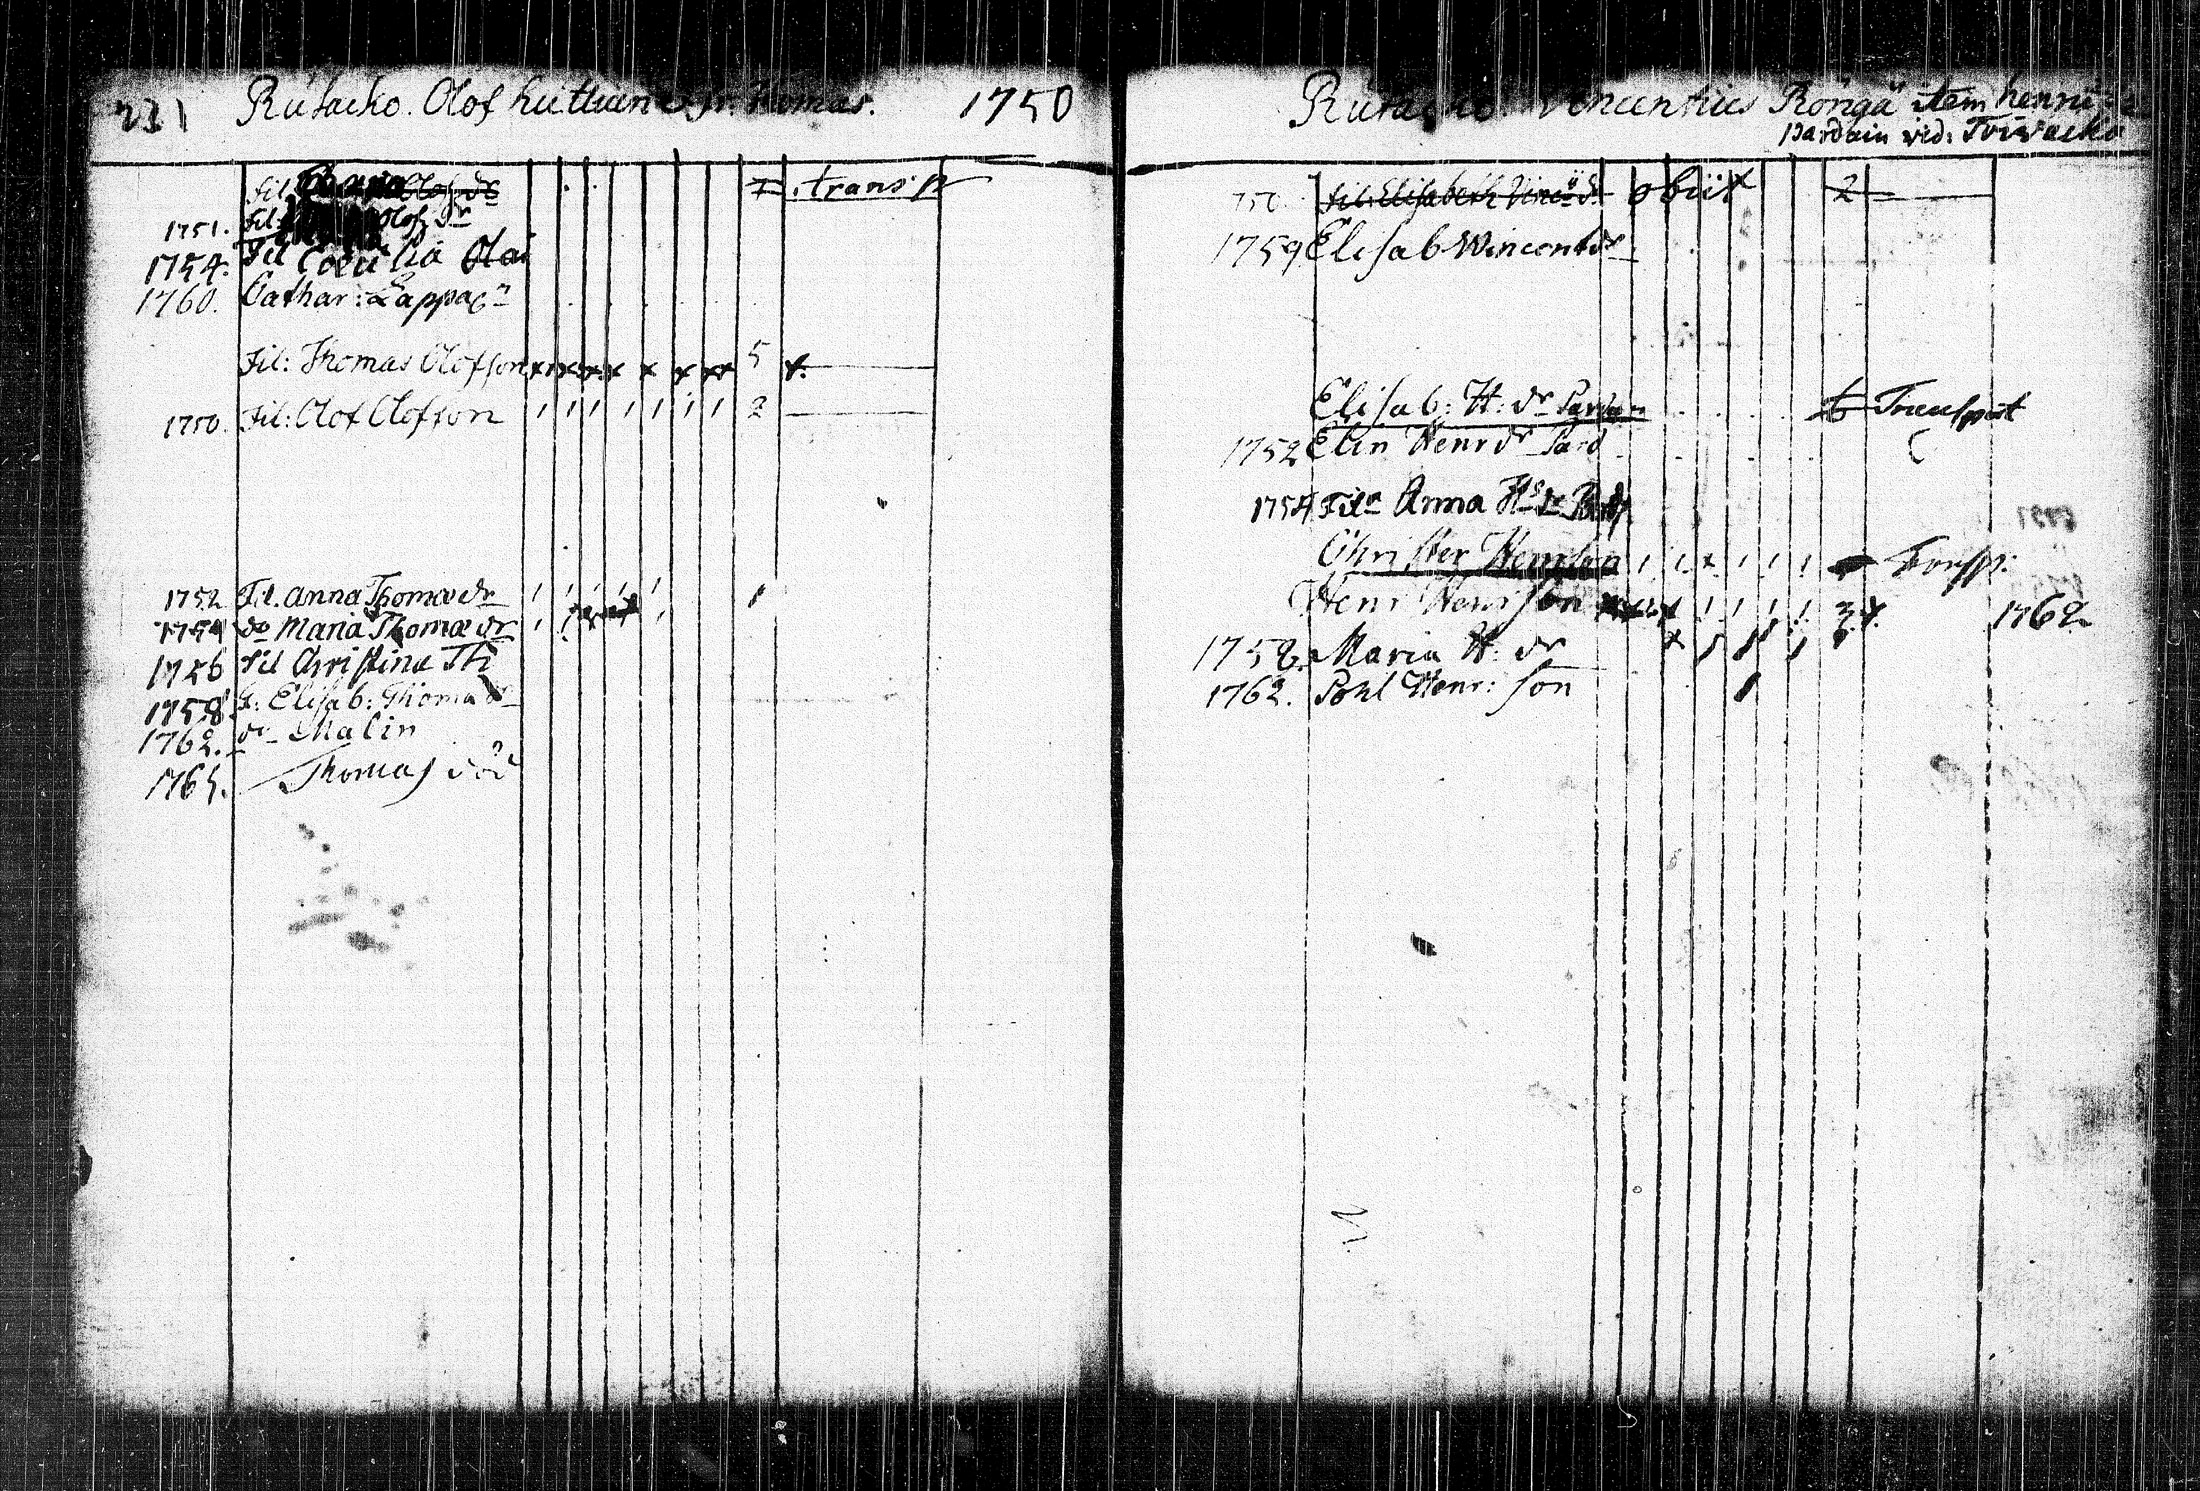 231 Rutacko. Olof huttunen fr: Thomas. 1750
Fil: Olofs dr 7 transp
1751. Fil: Olofs dr
1754. Fil Coecilia Olai
1760. Cathar: Lappa
Fil: Thomas Olofson x x x x x x x 5 x.
1750. Fil: Olof Olofson / / / / / / / 2
1752 Fil. Anna Thomæ dr / / / / / 1
1754 do Maria Thomæ dr / /
1756 Fil Christina Th
1758. F: Elisab: Thoma dr
1762. do Malin
1765. Thomas död
Rutacko. Vincentius Röngä item henric
pardain vid: Toivacko
750. Fil: Elisabeth Vinc dr obiit 2
1759 Elisab Wincent dr
Elisab: H: dr Pardain 6 Transport
1752 Elin Henr dr Pard
1754 Fila Anna Hs dr
Christer Henrson / / x / / / Transp.
Henr Henrson / / / / 3 x. 1762
1752. Maria H: dr x / / /
1762. Pohl Henr: son /